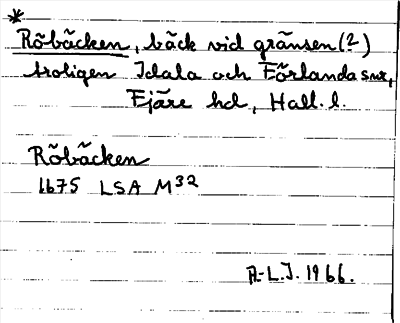 *
Röbäcken, bäck vid gränsen (?)
troligen Idala och Förlanda snr,
Fjäre hd, Hall. l.
Röbäcken
1675 LSA M32
A-L.J. 1966.